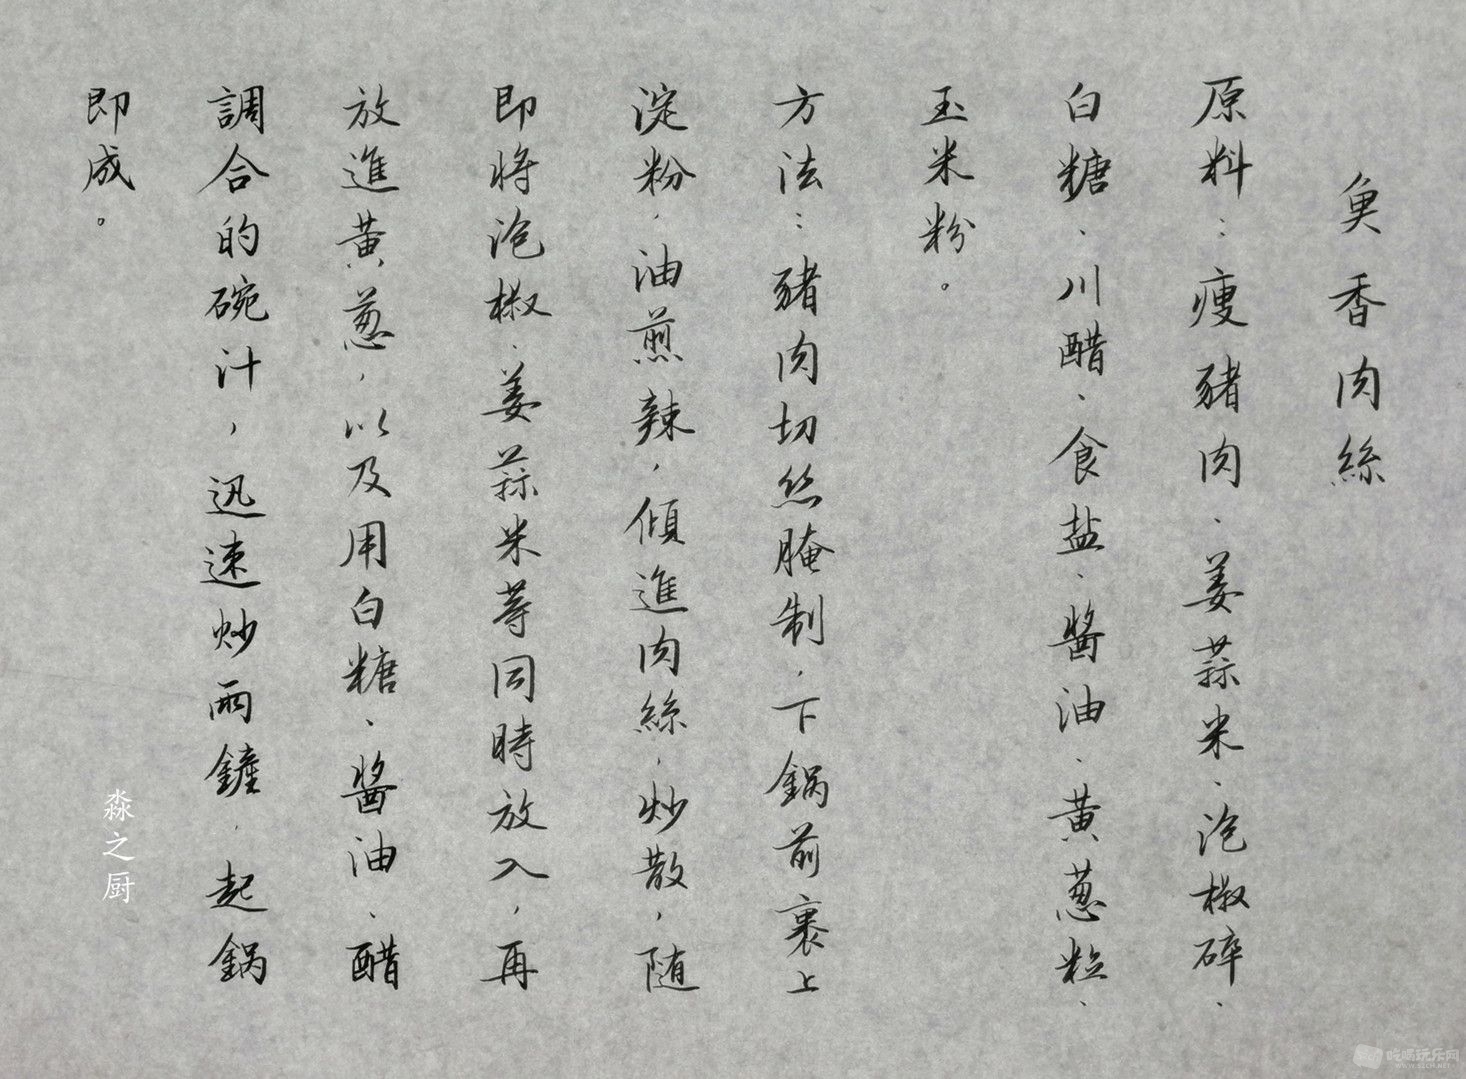 魚香肉絲
原料：瘦豬肉、姜蒜米、泡椒碎、
白糖、川醋、食盐、醬油、黃蔥粒、
玉米粉。
方法：豬肉切丝腌制，下鍋前裹上
淀粉，油煎辣，傾進肉絲，炒散，随
即将泡椒、姜蒜米等同時放入，再
放進黃蔥，以及用白糖、醬油、醋
調合的碗汁，迅速炒兩鏟，起鍋
即成。
淼之厨
吃喝玩乐网